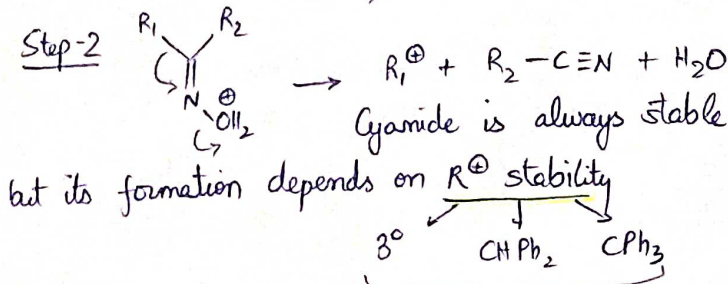 Step-2
R₁ R₂
N ⊕
OH₂
→ R₁⊕ + R₂-C≡N + H₂O
Cyanide is always stable
but its formation depends on R⊕ stability
3° CHPh₂ CPh₃